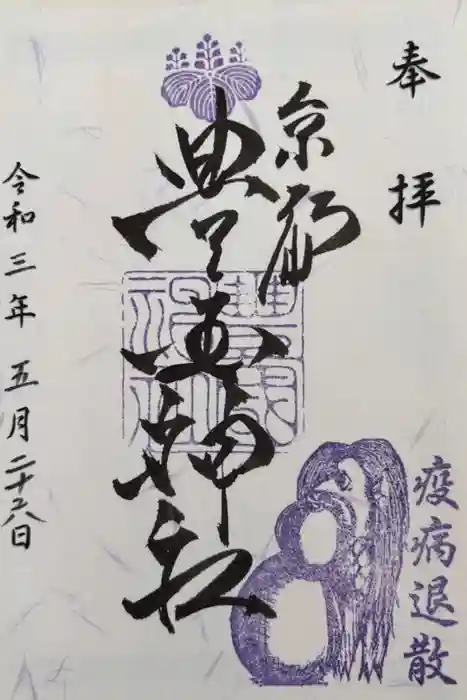 奉拝
京都
豊国神社
豐國神社
疫病退散
令和三年五月二十六日